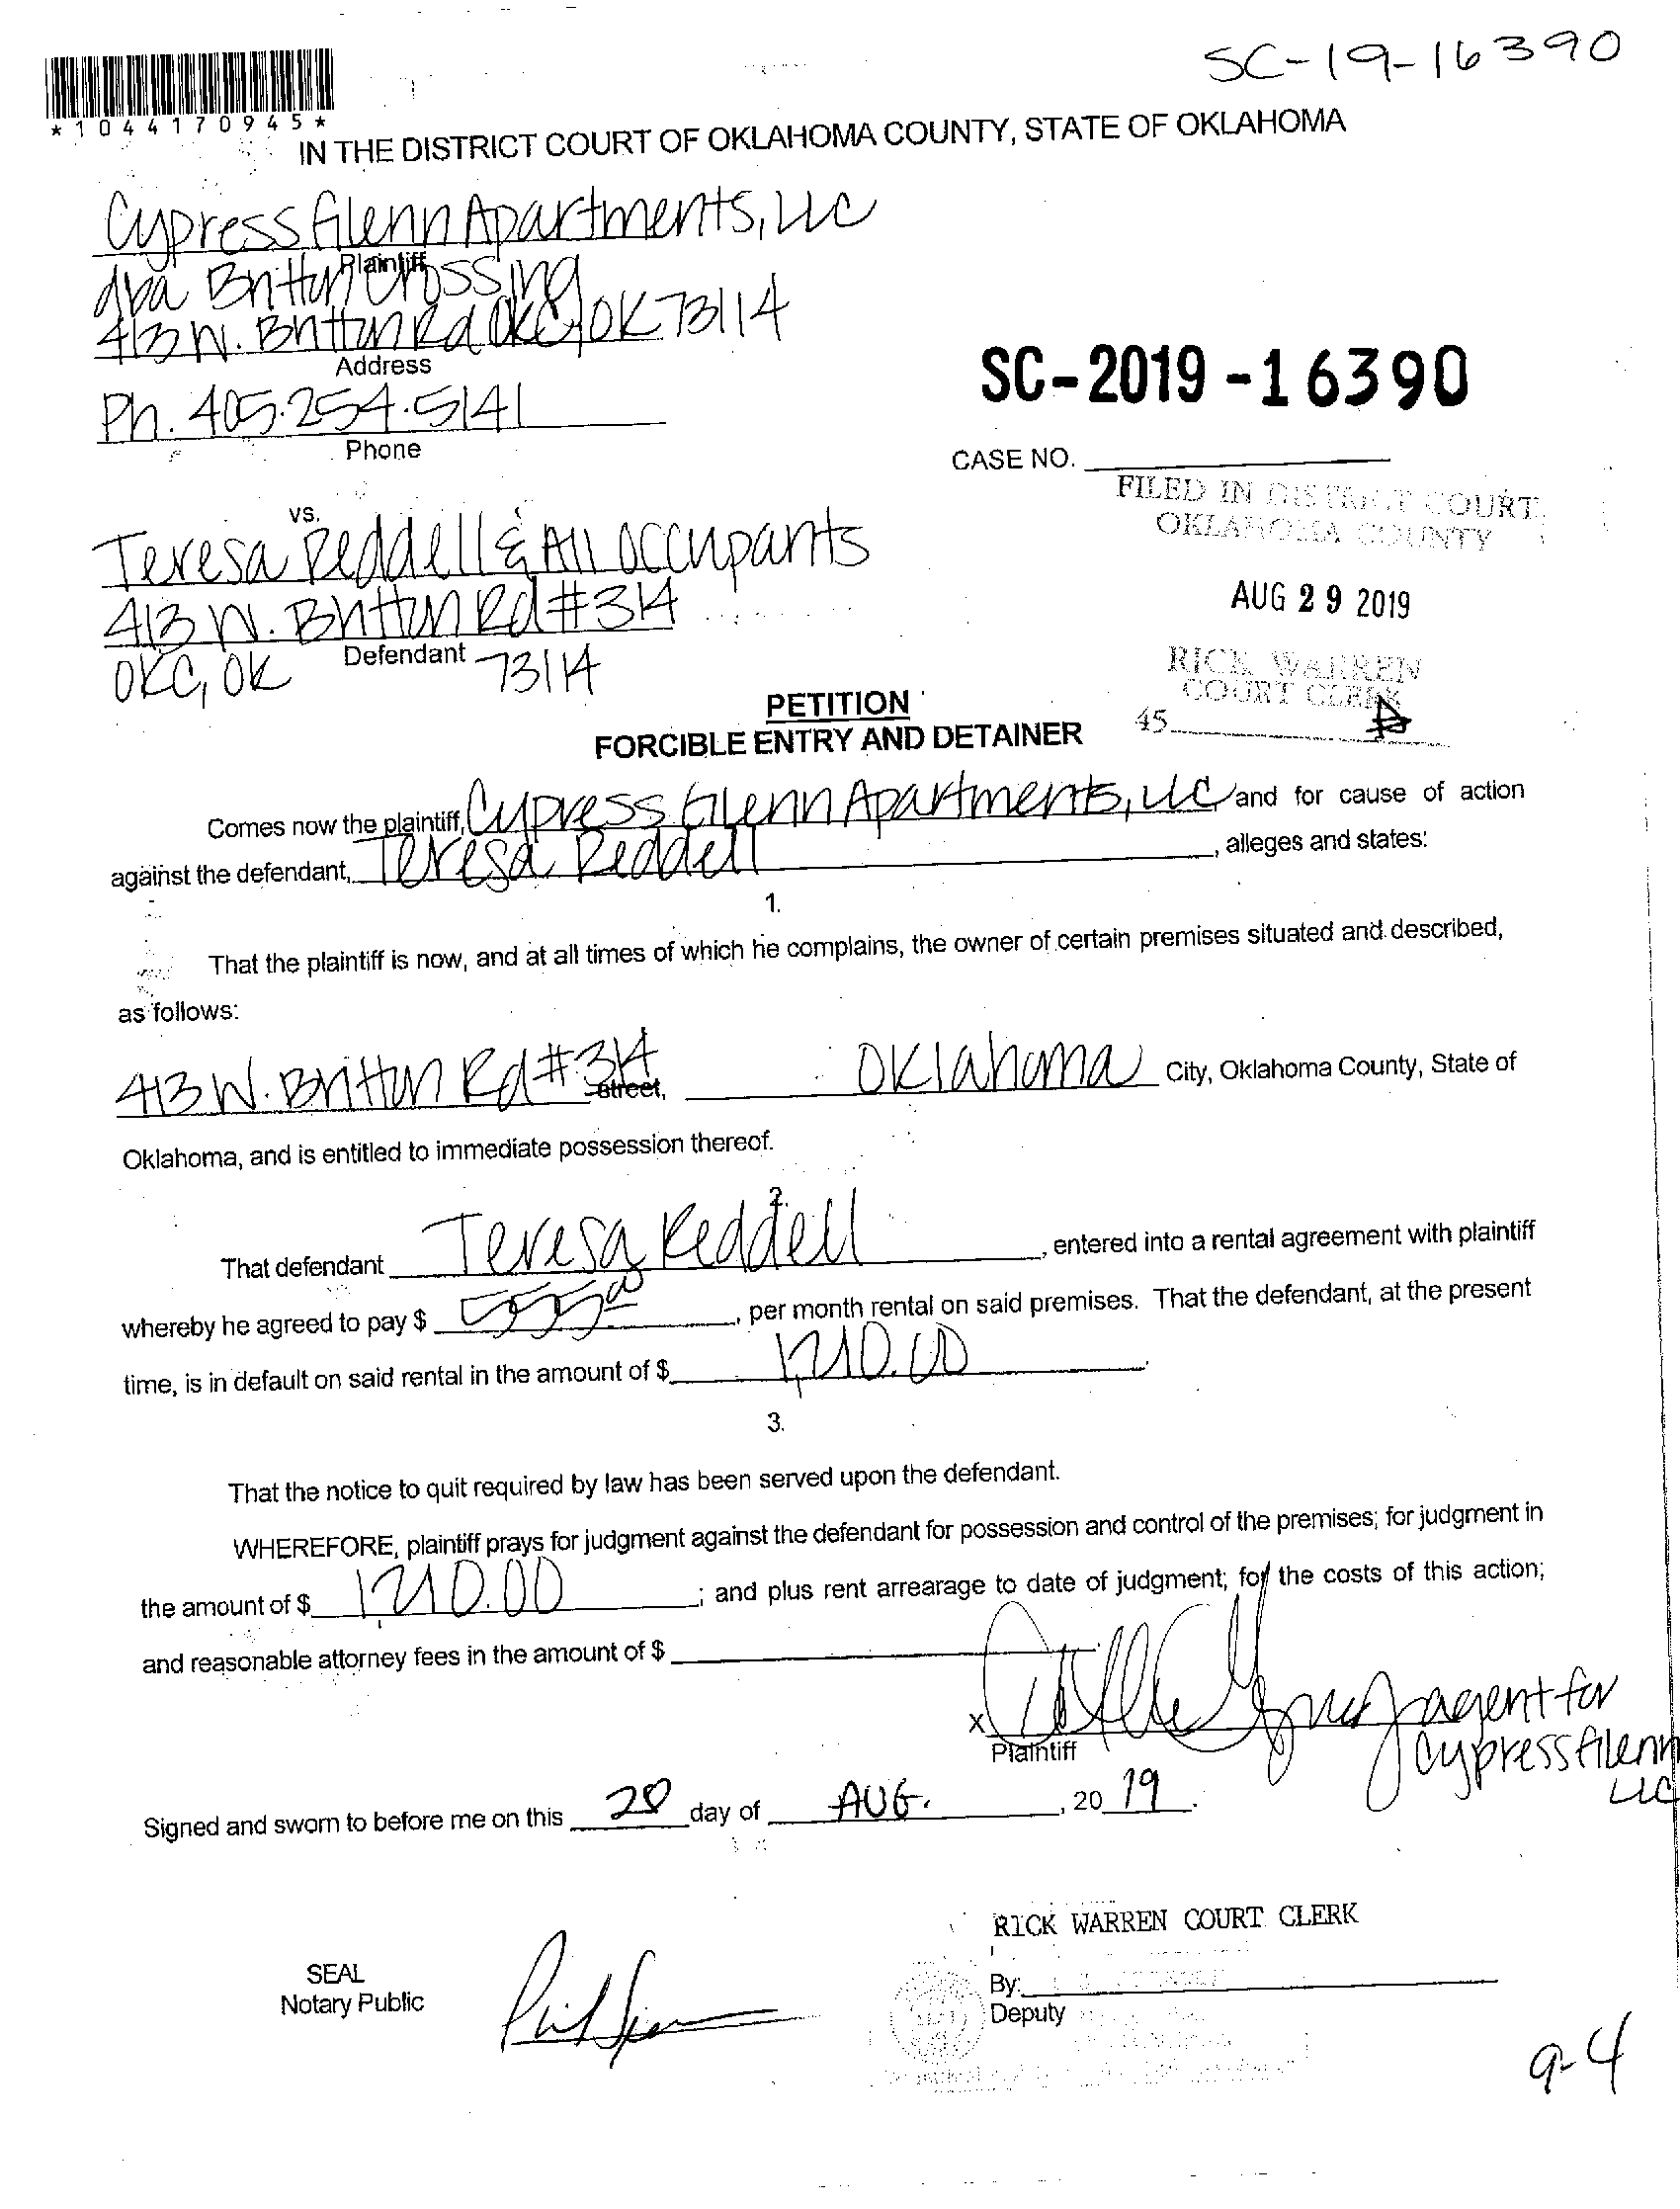 SC-19-16390
*1044170945*
IN THE DISTRICT COURT OF OKLAHOMA COUNTY, STATE OF OKLAHOMA
Cypress Glenn Apartments, LLC
Plaintiff
dba Britton Crossing
413 W. Britton Rd OKC, OK 73114
Address
Ph. 405.254.5141
Phone
SC-2019-16390
CASE NO.
FILED IN DISTRICT COURT
OKLAHOMA COUNTY
vs.
Teresa Reddell & All Occupants
413 W. Britton Rd #314
AUG 29 2019
OKC, OK Defendant 73114
RICK WARREN
COURT CLERK
45
PETITION
FORCIBLE ENTRY AND DETAINER
Comes now the plaintiff, Cypress Glenn Apartments, LLC and for cause of action
against the defendant, Teresa Reddell, alleges and states:
1.
That the plaintiff is now, and at all times of which he complains, the owner of certain premises situated and described,
as follows:
413 W. Britton Rd #314 Street, Oklahoma City, Oklahoma County, State of
Oklahoma, and is entitled to immediate possession thereof.
2.
That defendant Teresa Reddell, entered into a rental agreement with plaintiff
whereby he agreed to pay $ , per month rental on said premises. That the defendant, at the present
time, is in default on said rental in the amount of $ 1,210.00
3.
That the notice to quit required by law has been served upon the defendant.
WHEREFORE, plaintiff prays for judgment against the defendant for possession and control of the premises; for judgment in
the amount of $ 1,210.00 ; and plus rent arrearage to date of judgment; for the costs of this action;
and reasonable attorney fees in the amount of $
x agent for
Plaintiff Cypress Glenn
LLC
Signed and sworn to before me on this 28 day of AUG., 20 19.
RICK WARREN COURT CLERK
SEAL
Notary Public
By:
Deputy
9-4